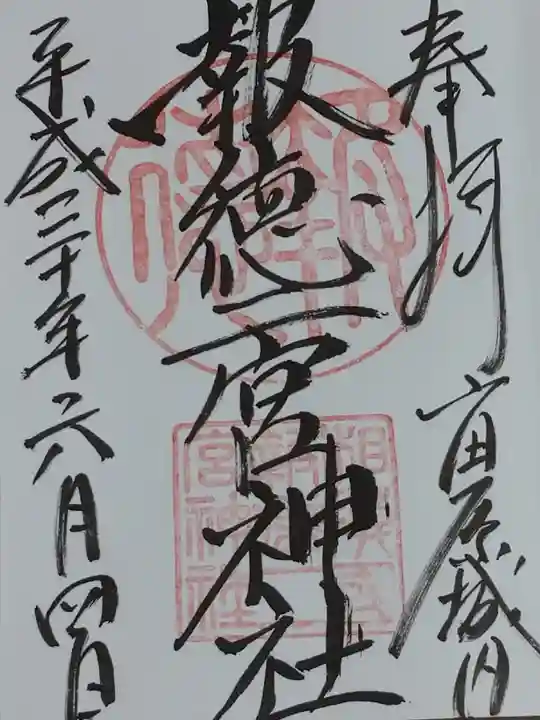 奉拝 小田原城内
報徳二宮神社
平成三十年六月四日